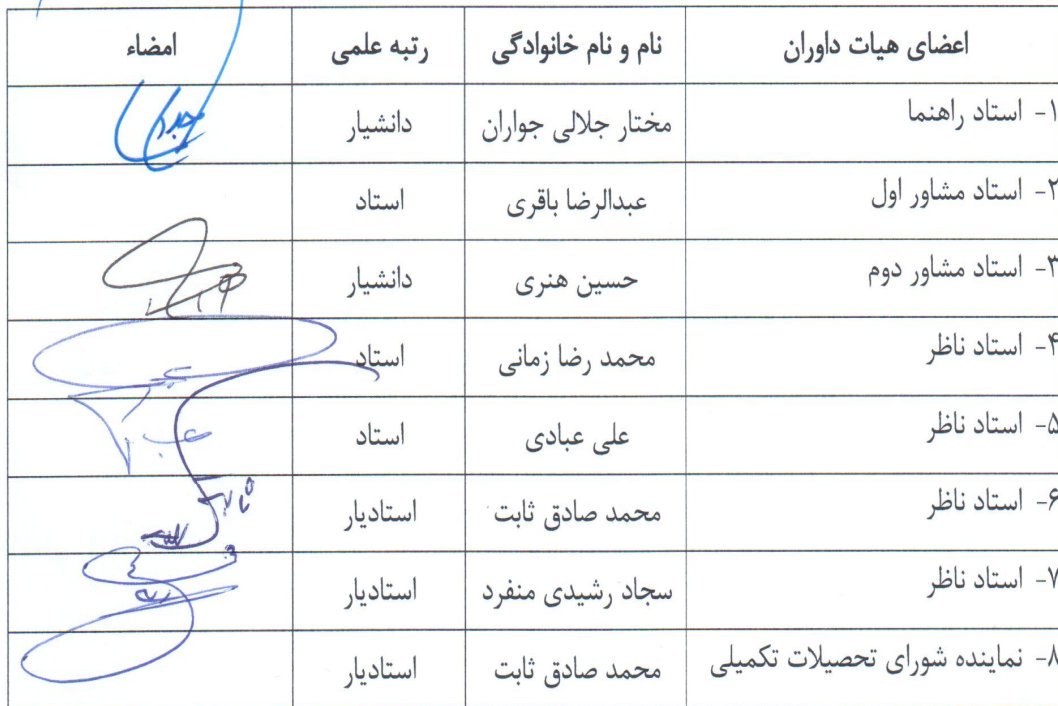 اعضای هیات داوران نام و نام خانوادگی رتبه علمی امضاء
۱- استاد راهنما مختار جلالی جواران دانشیار
۲- استاد مشاور اول عبدالرضا باقری استاد
۳- استاد مشاور دوم حسین هنری دانشیار
۴- استاد ناظر محمد رضا زمانی استاد
۵- استاد ناظر علی عبادی استاد
۶- استاد ناظر محمد صادق ثابت استادیار
۷- استاد ناظر سجاد رشیدی منفرد استادیار
۸- نماینده شورای تحصیلات تکمیلی محمد صادق ثابت استادیار